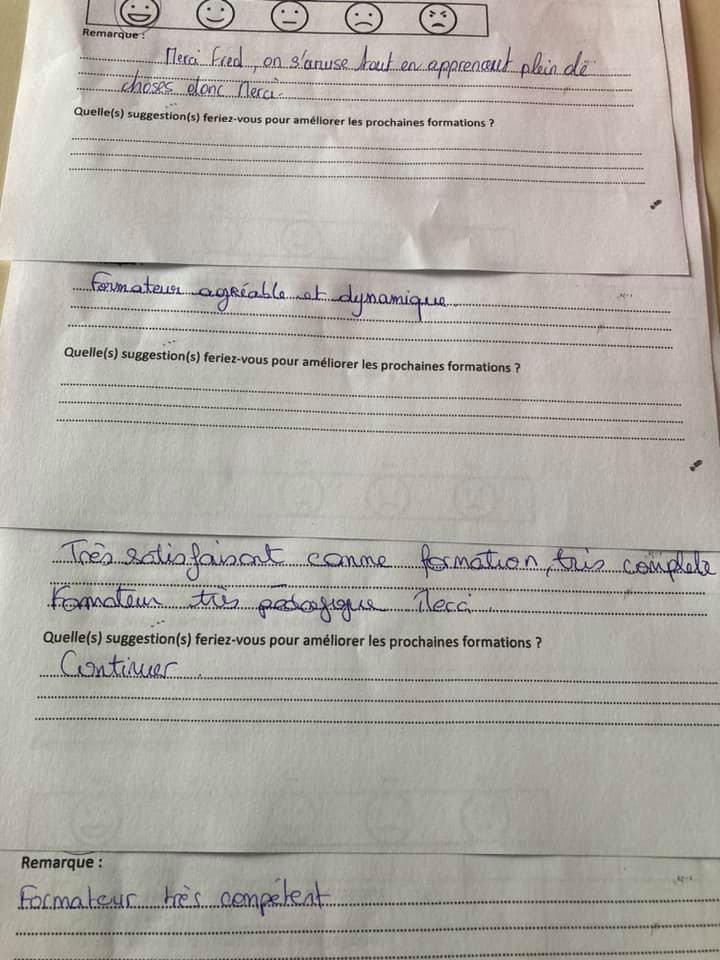 Remarque :
Merci Fred, on s'amuse tout en apprenant plein de
choses donc Merci.
Quelle(s) suggestion(s) feriez-vous pour améliorer les prochaines formations ?
Formateur agréable et dynamique
Quelle(s) suggestion(s) feriez-vous pour améliorer les prochaines formations ?
Très satisfaisant comme formation, très complete
Formateur très pédagogique Merci.
Quelle(s) suggestion(s) feriez-vous pour améliorer les prochaines formations ?
Continuer.
Remarque :
Formateur très compétent